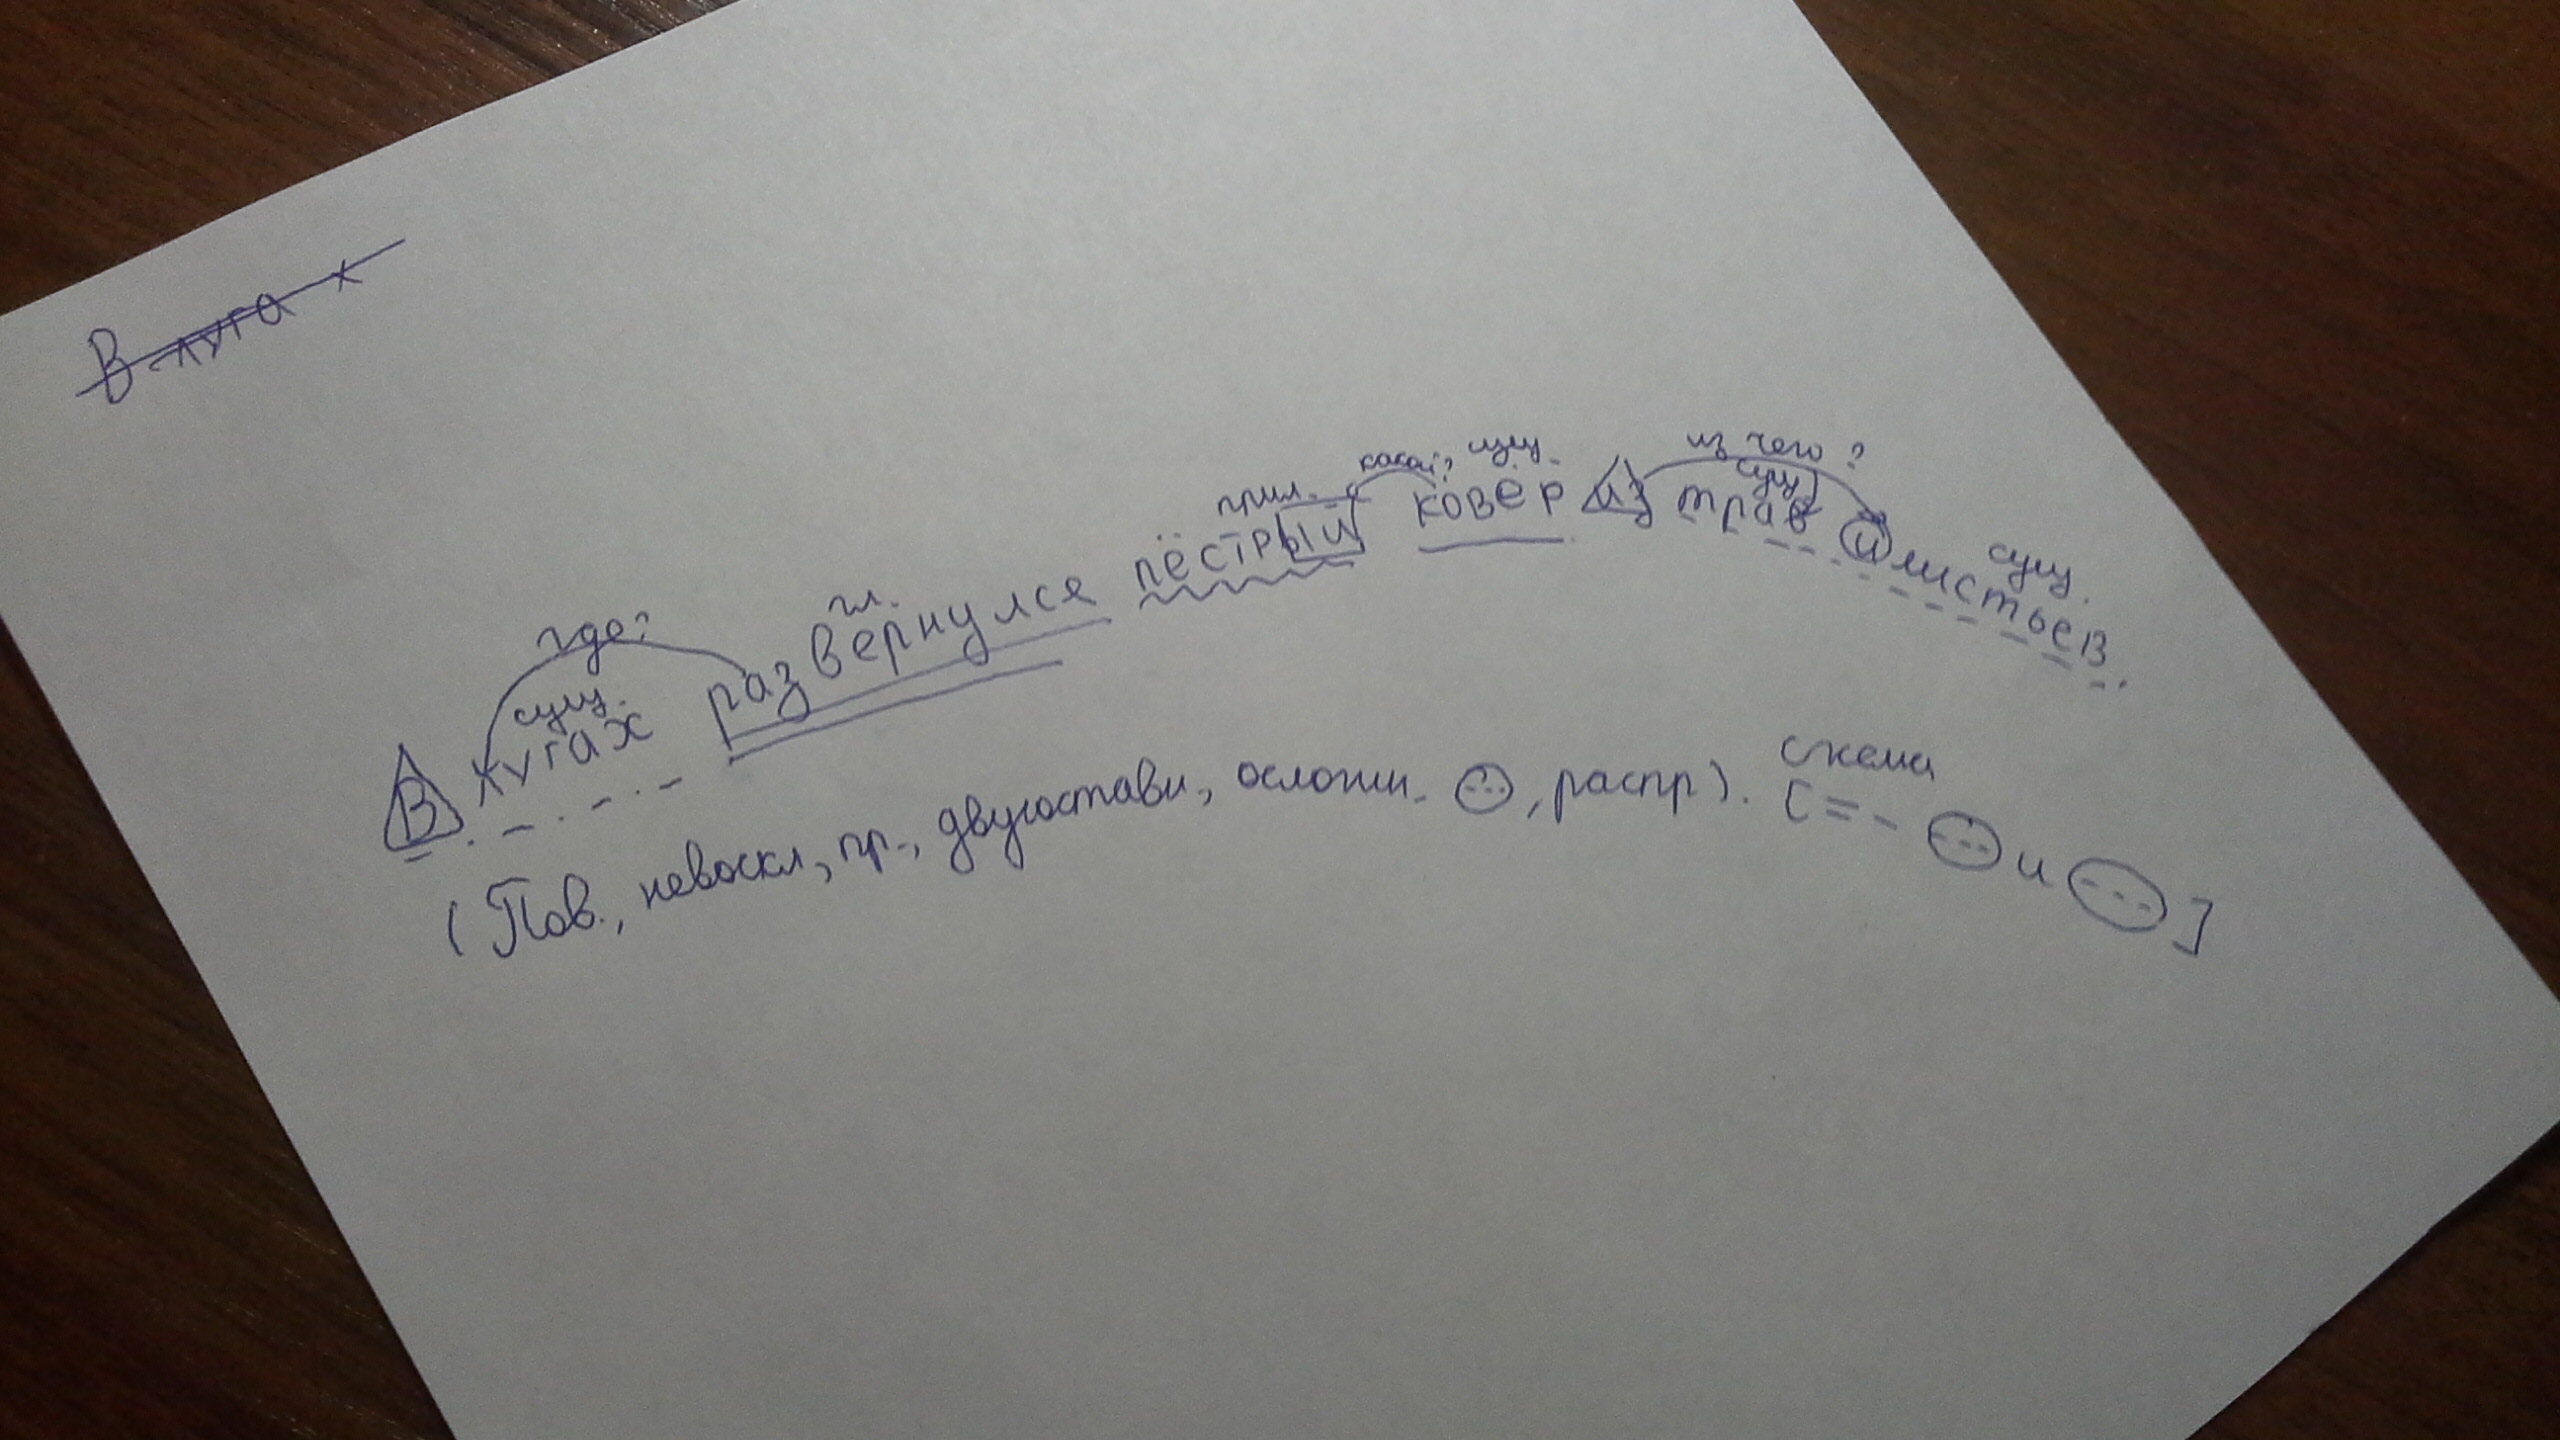 В луга х
где? гл. прил. какой? сущ. из чего?
сущ. сущ. сущ.
В лугах развернулся пёстрый ковёр из трав и листьев.
(Пов., невоскл, пр., двусоставн, ослонн. , распр). схема
[= - и ]